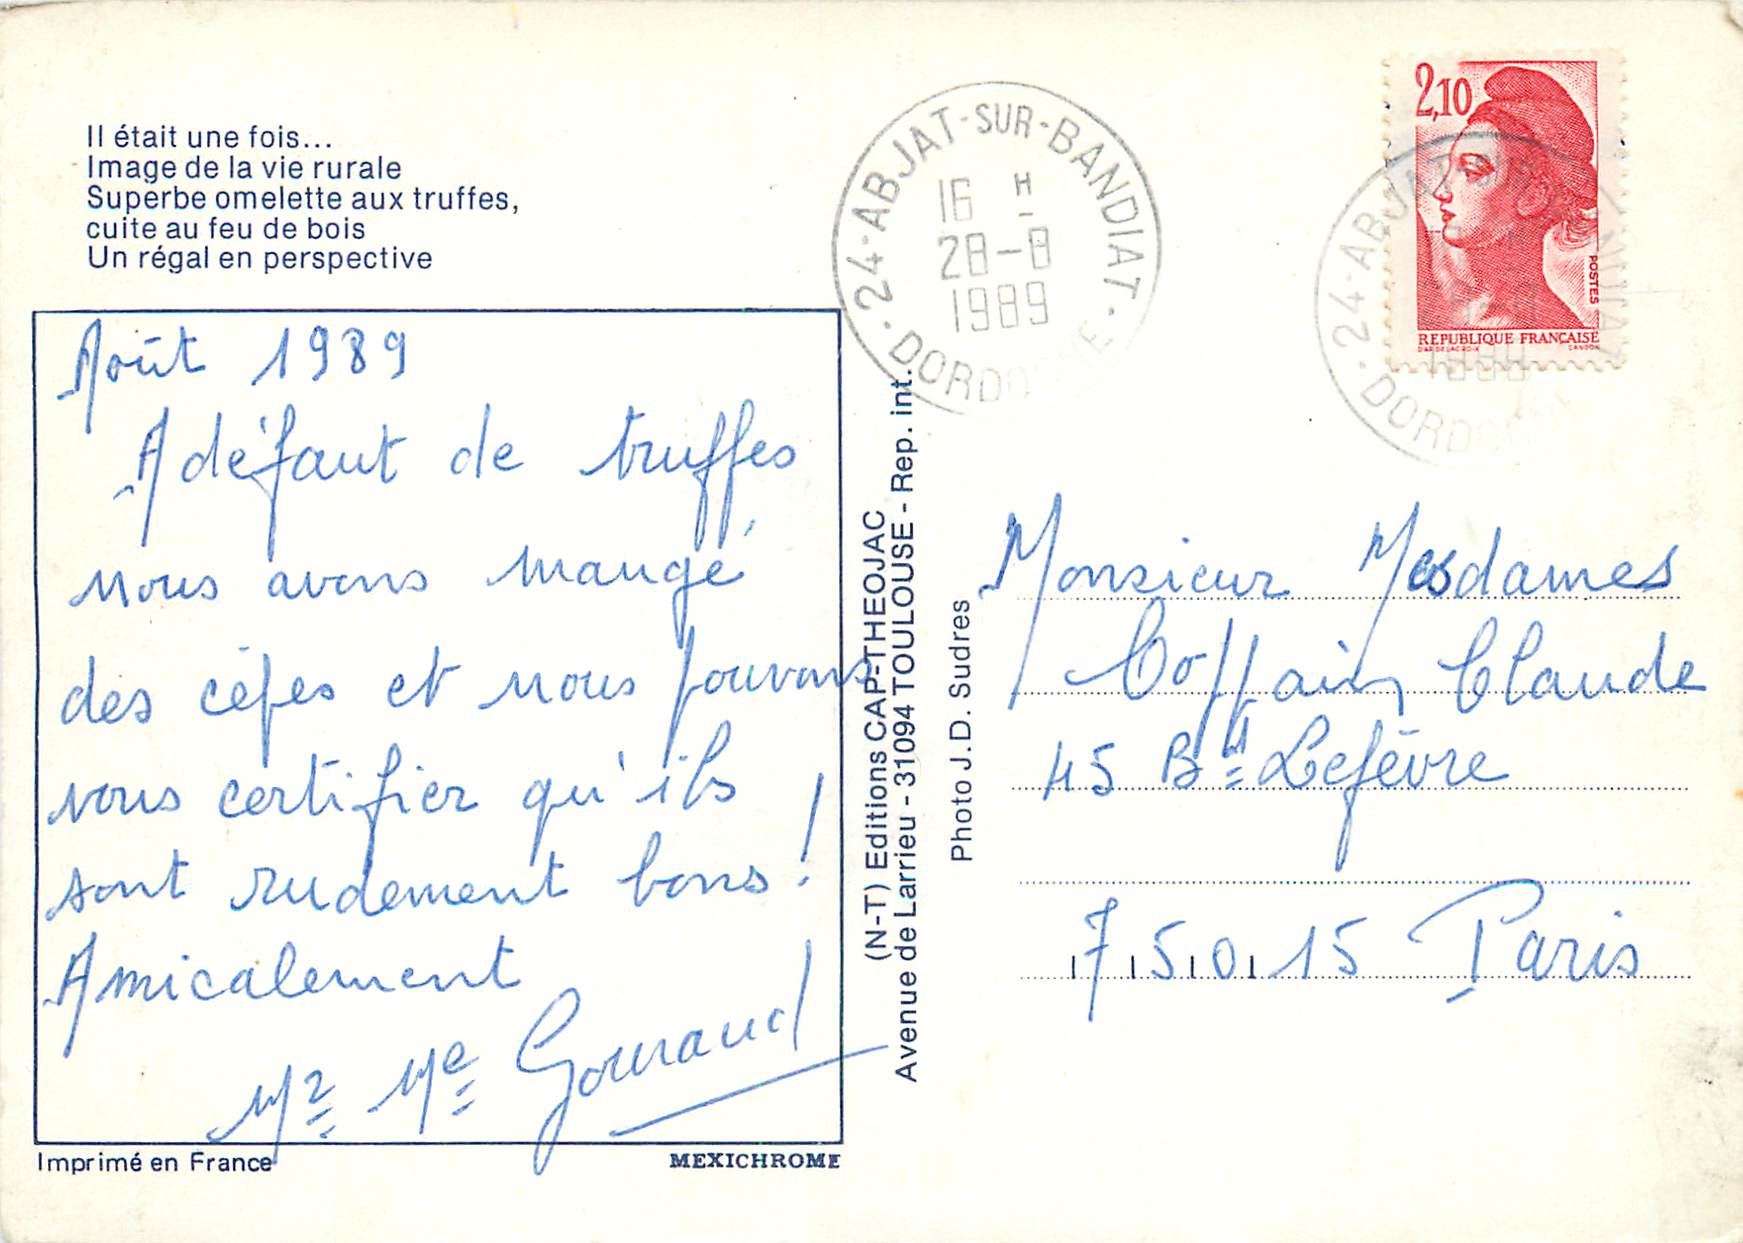 Il était une fois...
Image de la vie rurale
Superbe omelette aux truffes,
cuite au feu de bois
Un régal en perspective
Août 1989
A défaut de truffes
nous avons mangé
des cèpes et nous pouvons
vous certifier qu'ils
sont rudement bons !
Amicalement
Mr Me Gouraud
Imprimé en France
MEXICHROME
(N-T) Editions CAP-THEOJAC
Avenue de Larrieu - 31094 TOULOUSE - Rep. int.
Photo J.D. Sudres
24-ABJAT-SUR-BANDIAT
16 H
28-8
1989
DORDOGNE
2,10
POSTES
REPUBLIQUE FRANÇAISE
24-ABJAT-SUR
DORDOGNE
Monsieur Mesdames
Coffain Claude
45 Bd Lefèvre
75015 Paris